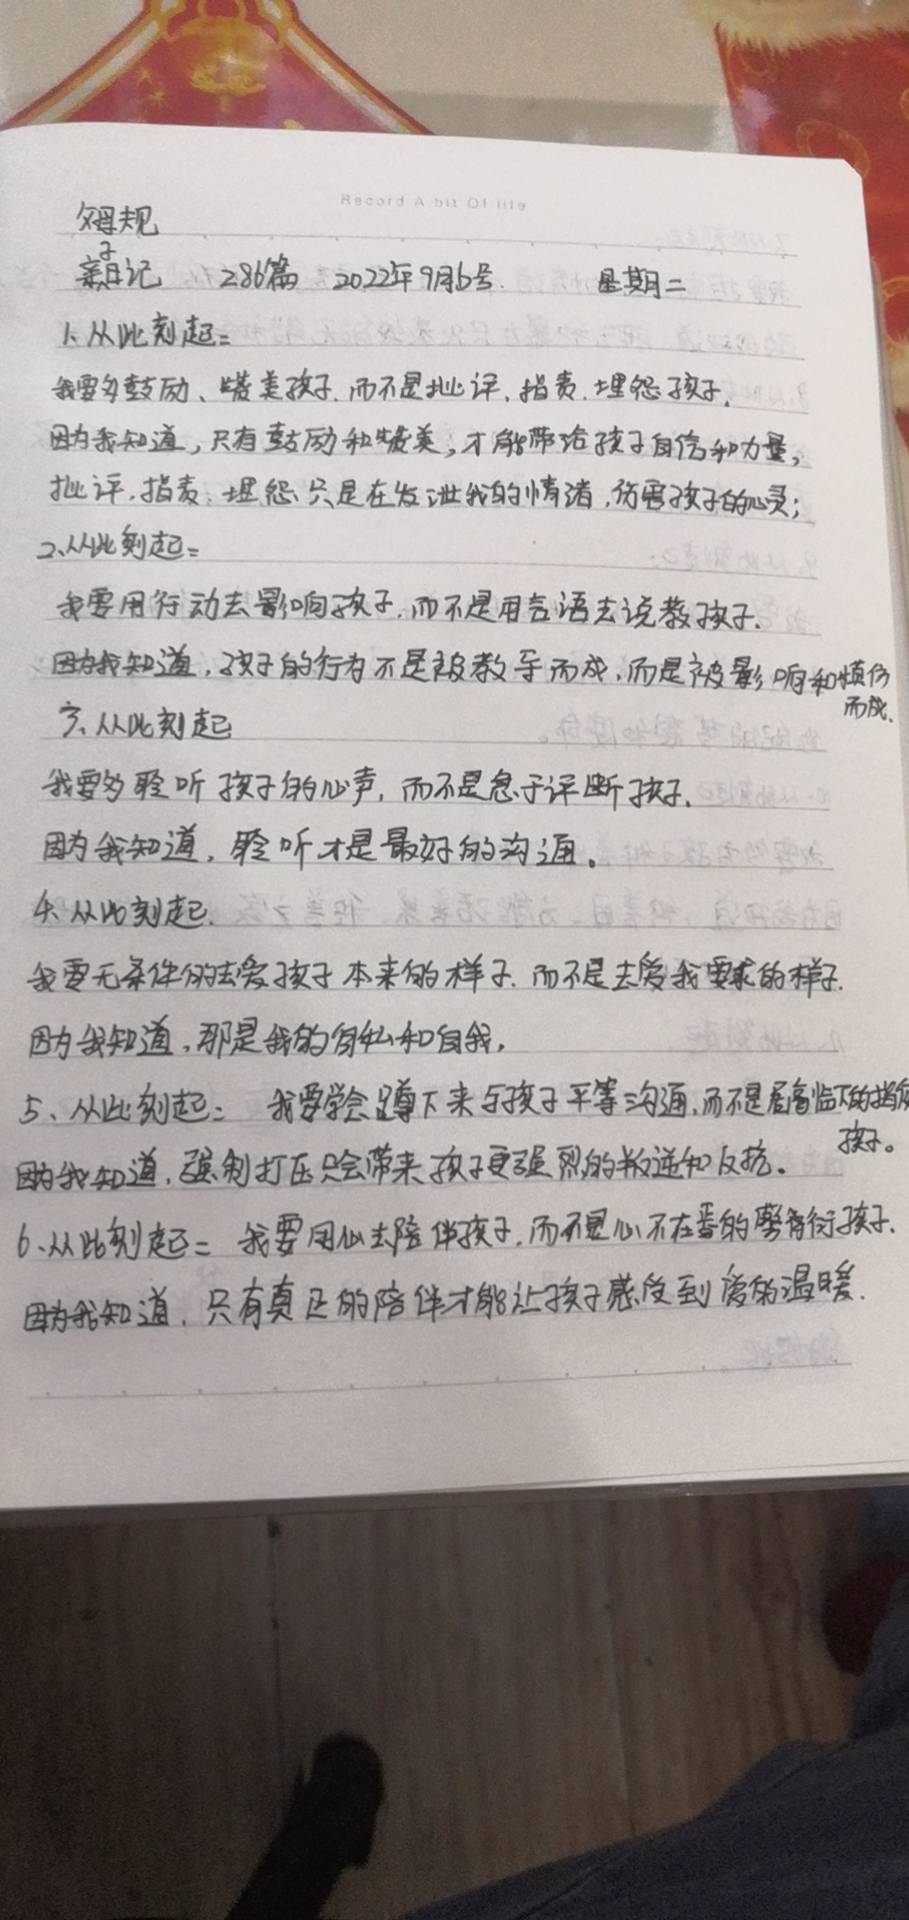 Record A bit Of life
父母规
亲子日记 286篇 2022年9月6号. 星期二
1、从此刻起:
我要多鼓励、赞美孩子.而不是批评.指责.埋怨孩子.
因为我知道,只有鼓励和赞美,才能带给孩子自信和力量,
批评.指责.埋怨只是在发泄我的情绪.伤害孩子的心灵;
2、从此刻起:
我要用行动去影响孩子.而不是用言语去说教孩子.
因为我知道,孩子的行为不是被教导而成.而是被影响和模仿
而成.
3、从此刻起
我要多聆听孩子的心声,而不是急于评断孩子.
因为我知道,聆听才是最好的沟通。
4、从此刻起.
我要无条件的去爱孩子本来的样子.而不是去爱我要求的样子.
因为我知道,那是我的自私和自我,
5、从此刻起: 我要学会蹲下来与孩子平等沟通.而不是居高临下的指责
孩子。
因为我知道,强制打压只会带来孩子更强烈的叛逆和反抗。
6、从此刻起: 我要用心去陪伴孩子.而不是心不在焉的敷衍孩子.
因为我知道.只有真正的陪伴才能让孩子感受到爱的温暖.